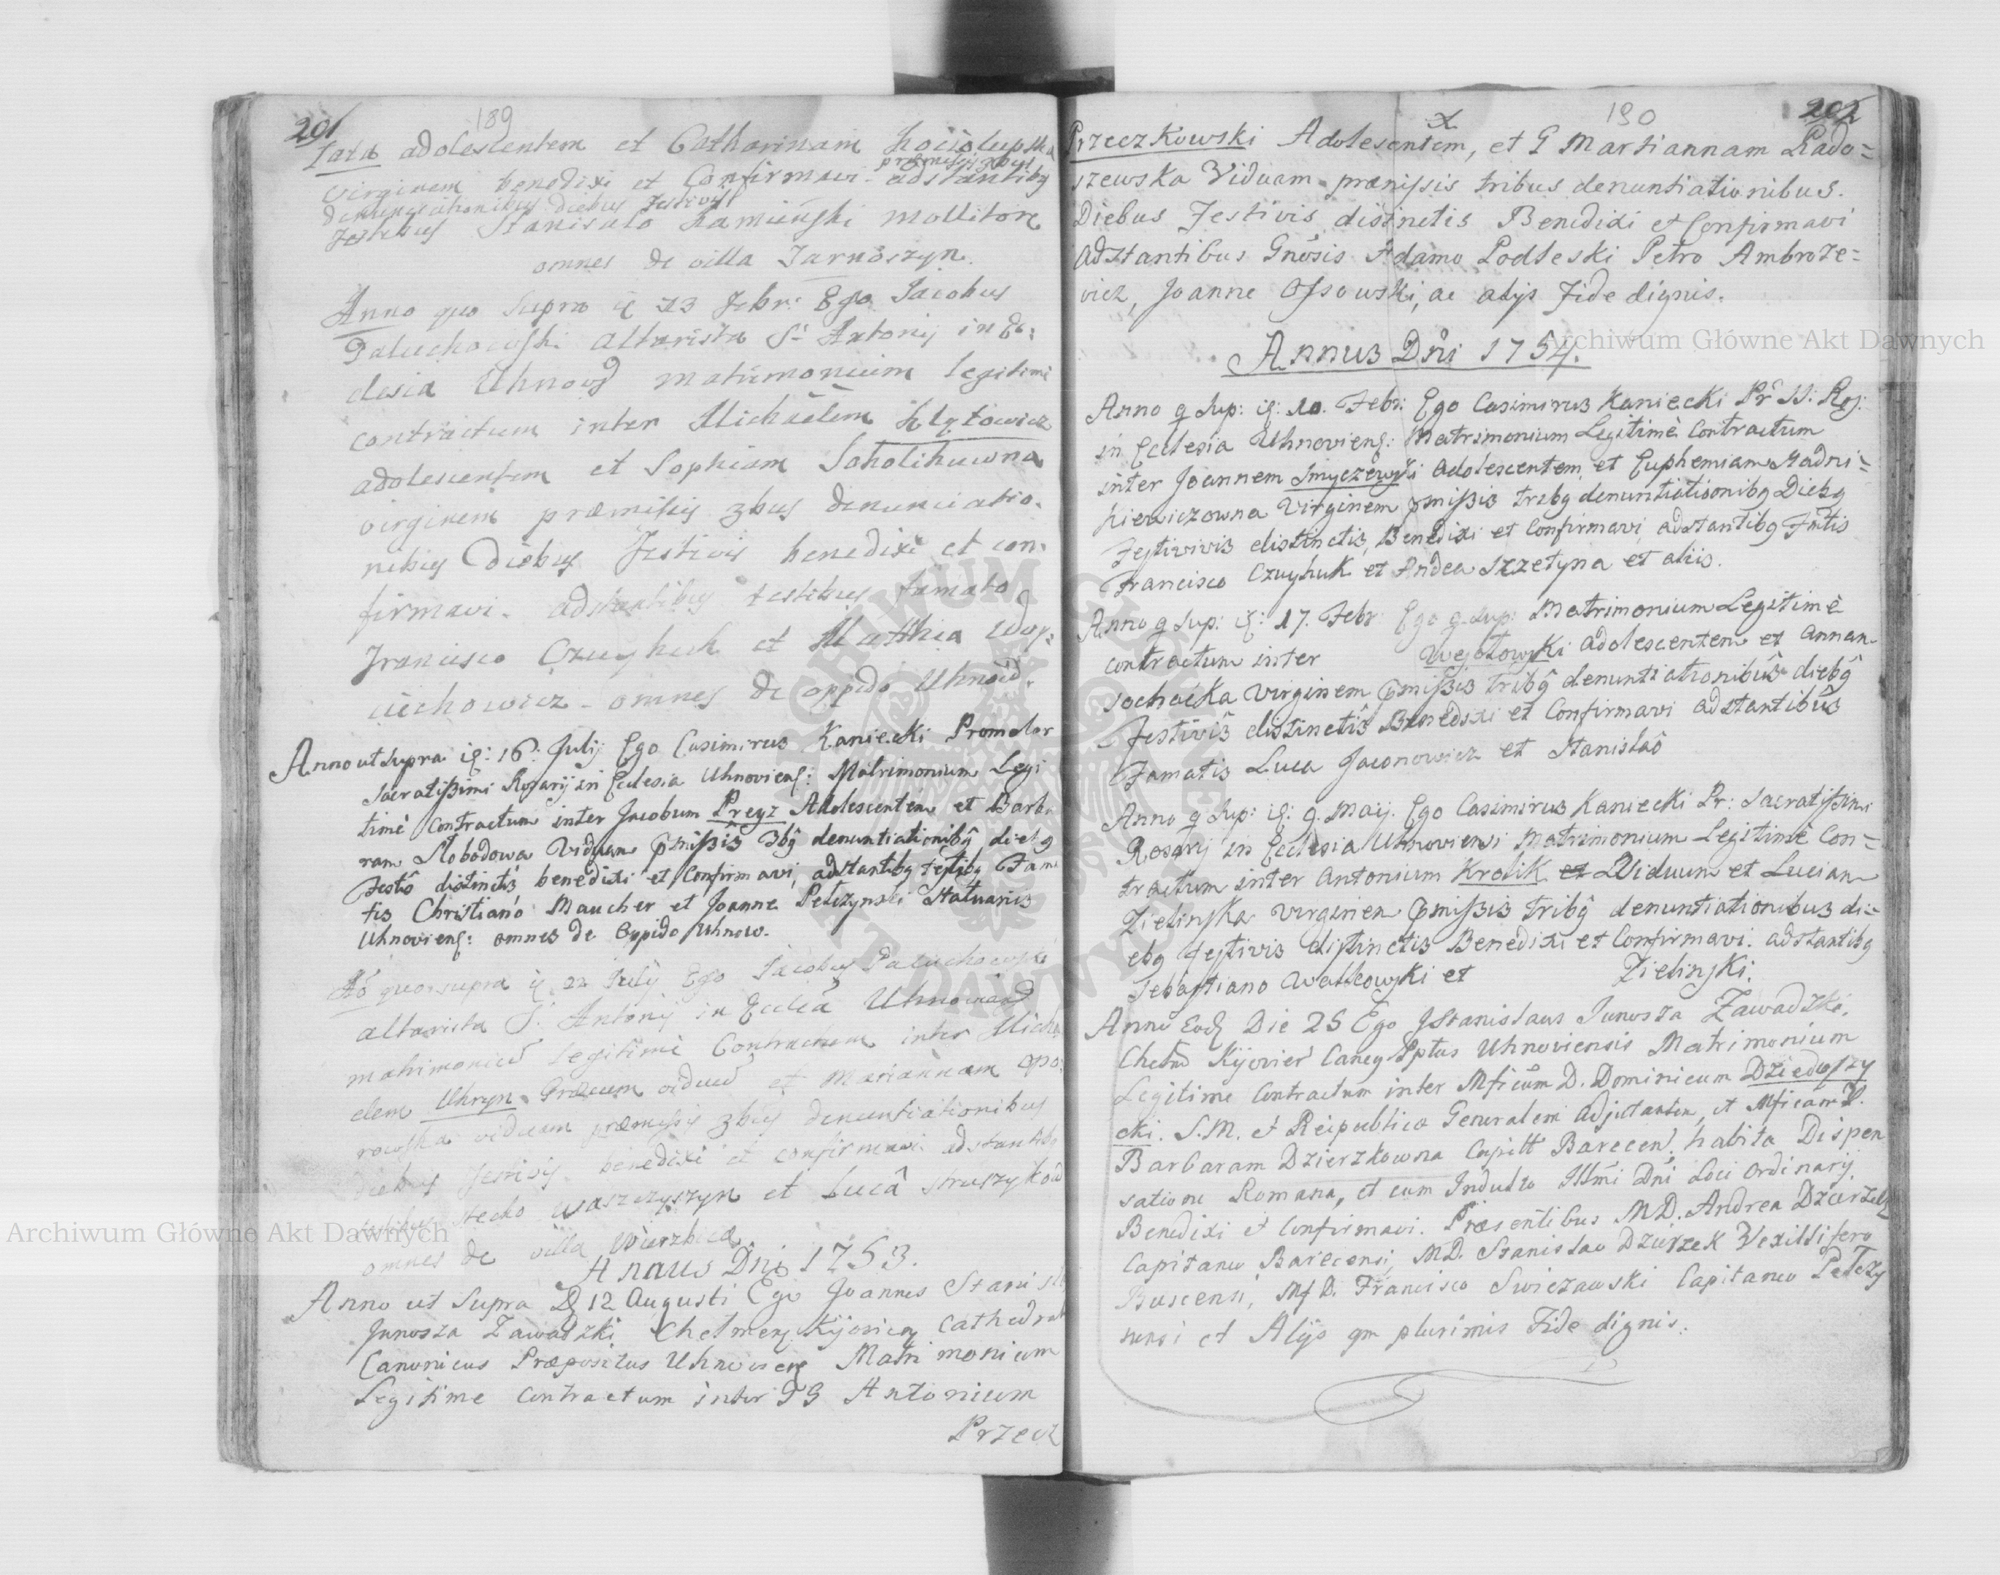 201
189
Tara adolescentem et Catharinam Kociołupska
præmissis 3bus
virginem benedixi et Confirmavi adstantibq
denunciationibus diebus Festivis
testibus Stanislao Kamieński mollitore
omnes de villa Jarnoszyn.
Anno quo supra ię 23 Febr: Ego Jacobus
Paluchowski altarista S: Antonij in Ec:
clesia Uhnoviẽ matrimonium legitime
contractum inter Michaelem
adolescentem et Sophiam Sokolikuwna
virginem præmissis 3bus denunciatio:
nibus Diebus Festivis benedixi et con:
firmavi. adstantibus testibus famato
Francisco Czuyhuk et Matthia Woy:
ciechowicz omnes de oppido Uhnoviẽ.
Anno ut supra ię: 16: Julij Ego Casimirus Kaniecki Promotor
Sacratißimi Rosarij in Ecclesia Uhnovienß: Matrimonium Legi
timè Contractum inter Jacobum Preyz Adolescentem et Barba
ram Slobodowa Viduam p̃mißis 3bq̃ denuntiationibq̃ diebq
Festõ distinctis benedixi et Confirmavi, adstantibq testibq Fam
tis Christiano Maucher et Joanne Pełczynski Statuaris
Uhnovienß: omnes de Oppido Uhnow.
Aõ quo supra ię 22 Julÿ Ego Jacobus Paluchowski
altarista S. Antonij in Ecclia Uhnowiens
matrimoniũ legitimè Contractum inter Micha
elem Uhryn Græcum viduũ et Mariannam Opo:
rowska viduam præmissis 3bus denuntiationibus
diebus Festivis benedixi et confirmavi adstantibs
testibus Stecko Waszczyszyn et Lucâ
omnes de villa Wierzbica
Annus Dni 1753.
Anno ut Supra D 12 Augusti Ego Joannes Stanisl
Junosza Zawadzki Chelmen Kijovien Cathedral
Canonicus Præpositus Uhnovien Matrimonium
Legitime contractum inter GG Antonium
Przecz
190
202
x
Przeczkowski Adolescentem, et G Martiannam Rado=
szewska Viduam præmissis tribus denuntiationibus.
Diebus Festivis distinctis Benedixi et Confirmavi
Adstantibus Gnosis Adamo Podleski Petro Ambroze=
vicz, Joanne Ossowski, ac alijs Fide dignis.
Annus Dñi 1754.
Anno q Sup: ię: 10. Febr: Ego Casimirus Kaniecki Pr SS: Ros:
in Ecclesia Uhnovienß: Matrimonium Legitimè Contractum
inter Joannem Smyczewski Adolescentem et Euphemiam Stadni=
kiewiczowna Virginem p̃mißis tribq denuntiationibq Diebq
Festivivis distinctis, Benedixi et Confirmavi adstantibq Fmtis
Francisco Czuyhuk et Andea Szzetyna et aliis.
Anno q Sup: ię: 17. Febr Ego q Sup: Matrimonium Legitimè
contractum inter Wejotowski adolescentem et Annam
Sochacka Virginem p̃mißis tribq̃ denuntiationibus diebq̃
Festivis distinctis Benedixi et Confirmavi adstantibus
Famatis Luca Jaconowicz et Stanislaô
Anno q Sup: ię: 9. Maij. Ego Casimirus Kaniecki Pr: Sacratißimi
Rosarij in Ecclesia Uhnoviensi Matrimonium Legitimè Con=
tractum inter Antonium Krolik et Viduum et Lucian
Zielinska Virginem p̃mißis tribq̃ denuntiationibus di=
ebq festivis distinctis Benedixi et Confirmavi. adstantibq
Sebastiano Walkowski et Zielinski.
Anno Eod Die 25 Ego JStanislaus Junosza Zawadzki.
Chelm Kijovien Caneg Pptus Uhnoviensis Matrimonium
Legitime Contractum inter Mficum D. Dominicum Dzieduszy
cki. S.M. et Reipublica Generalem Adjutantem, et Mficam D.
Barbaram Dzierzkowna Capitt Barecen. habita Dispen
satione Romana, et cum Indulto Illmi Dni Loci Ordinarij.
Benedixi et Confirmavi. Præsentibus MD. Andrea Dzierzek
Capitaneo Barecensi, MD. Stanislao Dzierzek Vexillifero
Buscensi, Mf D. Francisco Swiezawski Capitaneo Pełczy
nensi et Alijs qm plurimis Fide dignis.
Archiwum Główne Akt Dawnych
Archiwum Główne Akt Dawnych
ARCHIWUM GŁÓWNE AKT DAWNYCH